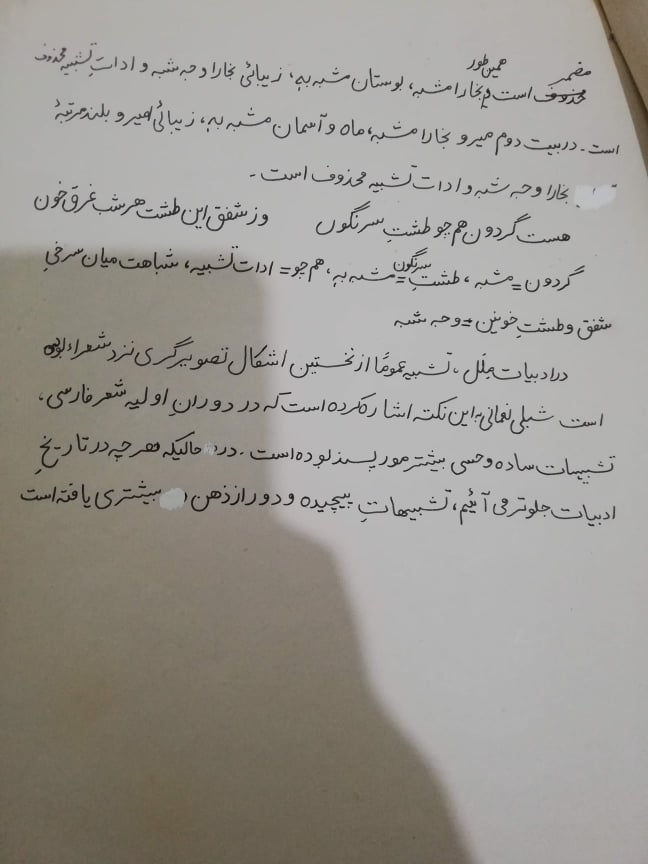 مضمر همین طور
محذوف است و بخارا مشبہ، بوستان مشبہ بہٖ، زیبائی بخارا وجہ شبہ و اداتِ تشبیہ محذوف
است۔ در بیت دوم میر و بخارا مشبہ، ماہ و آسمان مشبہ بہٖ، زیبائی امیر و بلند مرتبۂ
بخارا وجہ شبہ و ادات تشبیہ محذوف است۔
هست گردون هم چو طشتِ سرنگون وز شفق این طشت هر شب غرق خون
گردون = مشبہ، طشتِ سرنگون = مشبہ بہٖ، هم چو = ادات تشبیہ، شباهت میان سرخیِ
شفق و طشتِ خونین = وجہ شبہ
در ادبیات مِلَل، تشبیہ عموماً از نخستین اشکال تصویرگری نزد شعراء بوده
است شبلی نعمانی به این نکتہ اشاره کرده است که در دورانِ اولیه شعر فارسی،
تشبیهات ساده و حسی بیشتر مورد پسند بوده است۔ در حالیکہ هر چه در تاریخِ
ادبیات جلوتر می آئیم، تشبیهاتِ پیچیده و دور از ذهن بیشتری یافته است